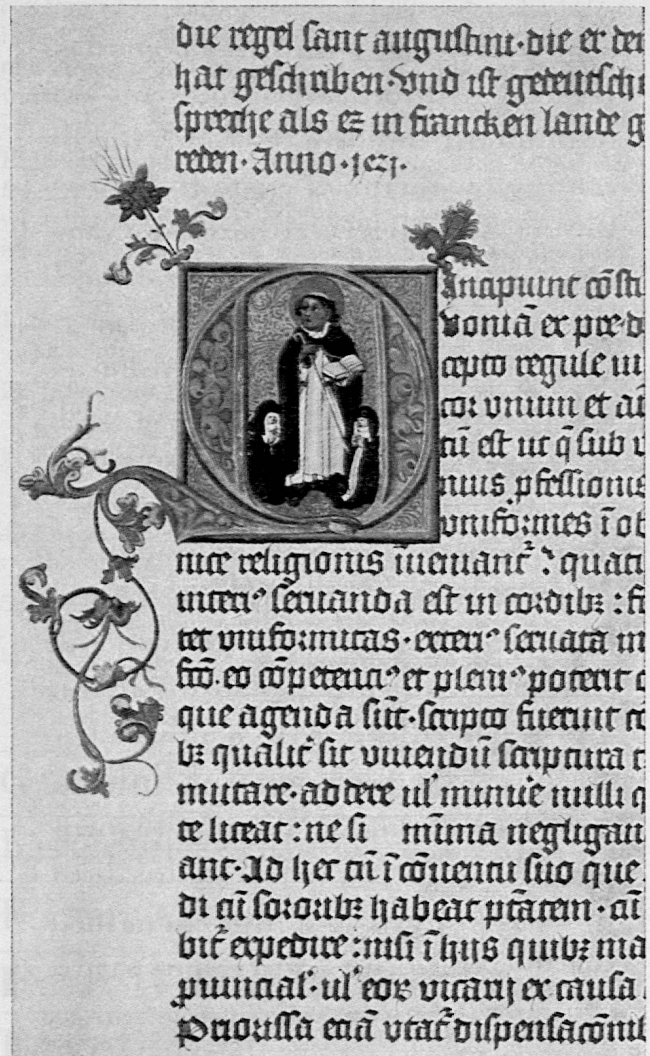 die regel sant augustini·die er den
hat geschriben·vnd ist geteutscht
spreche als ez in francken lande g
reden·Anno·1c21·
Incipiunt cōsti
Voniā ex pre
cepto regule iu
cor vnum et aī
cū est ut q̄ sub v
nius ꝓfessionis
vniformes ī ob
nice religionis īueniant᷑ : quati
interi⁹ seruanda est in cordibꝫ : fi
ter vniformitas·exteri⁹ seruata in
fcō·eo cōpetenti⁹ et pleni⁹ poterit
que agenda sūt·scripto fuerint cō
bꝫ qualit᷑ sit viuendū scriptura
mutare·addere ul᷑ minue᷑ nulli q
te liceat : ne si mīma negligan
ant·Ad hec cū ī cōuentu suo que
di cū sororibꝫ habeat ptātem·cū
bit᷑ expedire : nisi ī hijs quibꝫ ma
ꝓuincial᷑·ul᷑ eoꝝ vicarij ex causa
Priorissa eciā vtat᷑ dispensacōnib